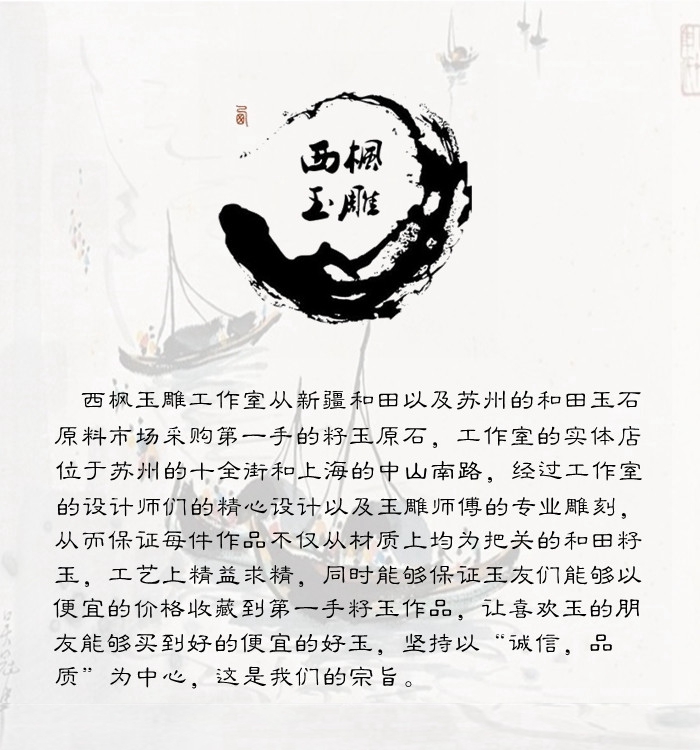 西枫
玉雕
西枫玉雕工作室从新疆和田以及苏州的和田玉石
原料市场采购第一手的籽玉原石，工作室的实体店
位于苏州的十全街和上海的中山南路，经过工作室
的设计师们的精心设计以及玉雕师傅的专业雕刻，
从而保证每件作品不仅从材质上均为把关的和田籽
玉，工艺上精益求精，同时能够保证玉友们能够以
便宜的价格收藏到第一手籽玉作品，让喜欢玉的朋
友能够买到好的便宜的好玉，坚持以“诚信，品
质”为中心，这是我们的宗旨。